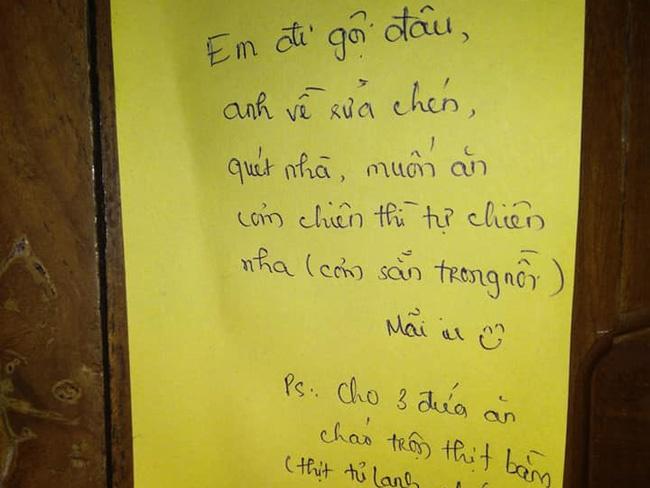 Em đi gội đầu,
anh về rửa chén,
quét nhà, muốn ăn
cơm chiên thì tự chiên
nha (cơm sẵn trong nồi)
Mãi iu
Ps: Cho 3 đứa ăn
cháo trộn thịt bằm
(thịt tủ lạnh